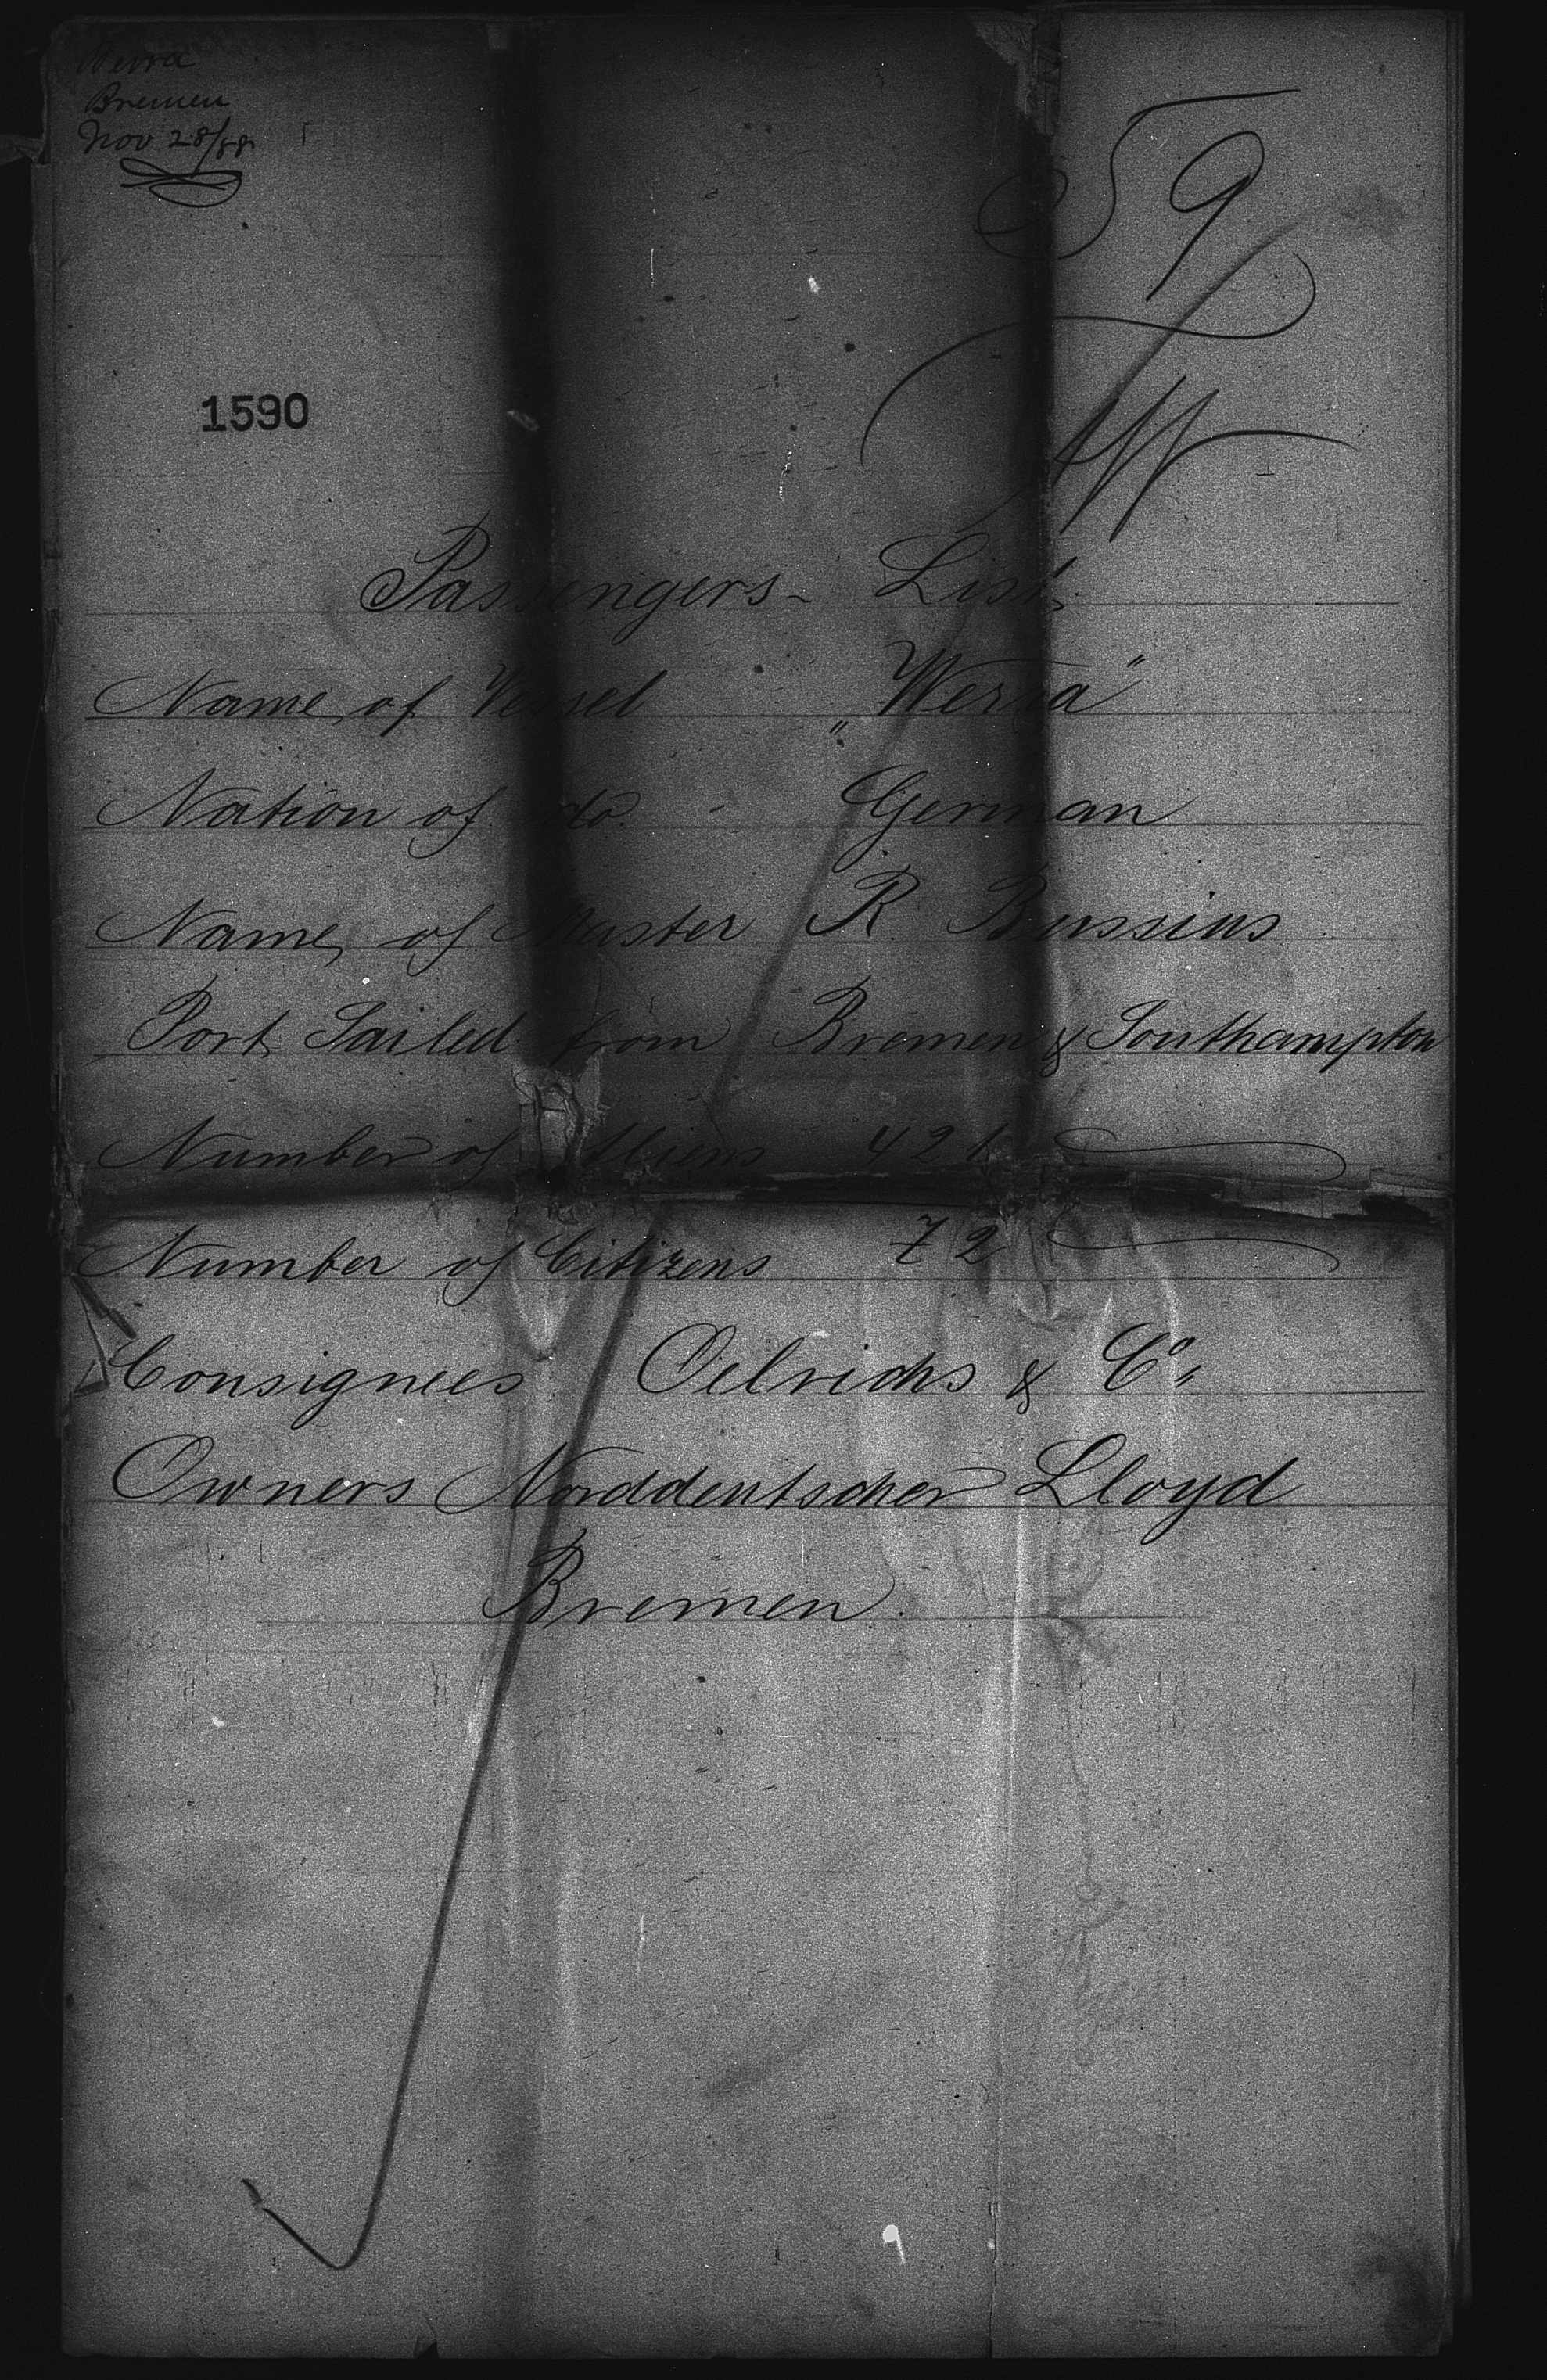 Werra
Bremen
Nov 28/88
59
1590
Passengers- List.
Name of Vessel „Werra"
Nation of do. - German
Name of Master R. Bussius
Port Sailed from Bremen & Southampton
Number of Aliens 421
Number of Citizens 72
Consignees Oelrichs & Co.
Owners Norddeutscher Lloyd
Bremen.